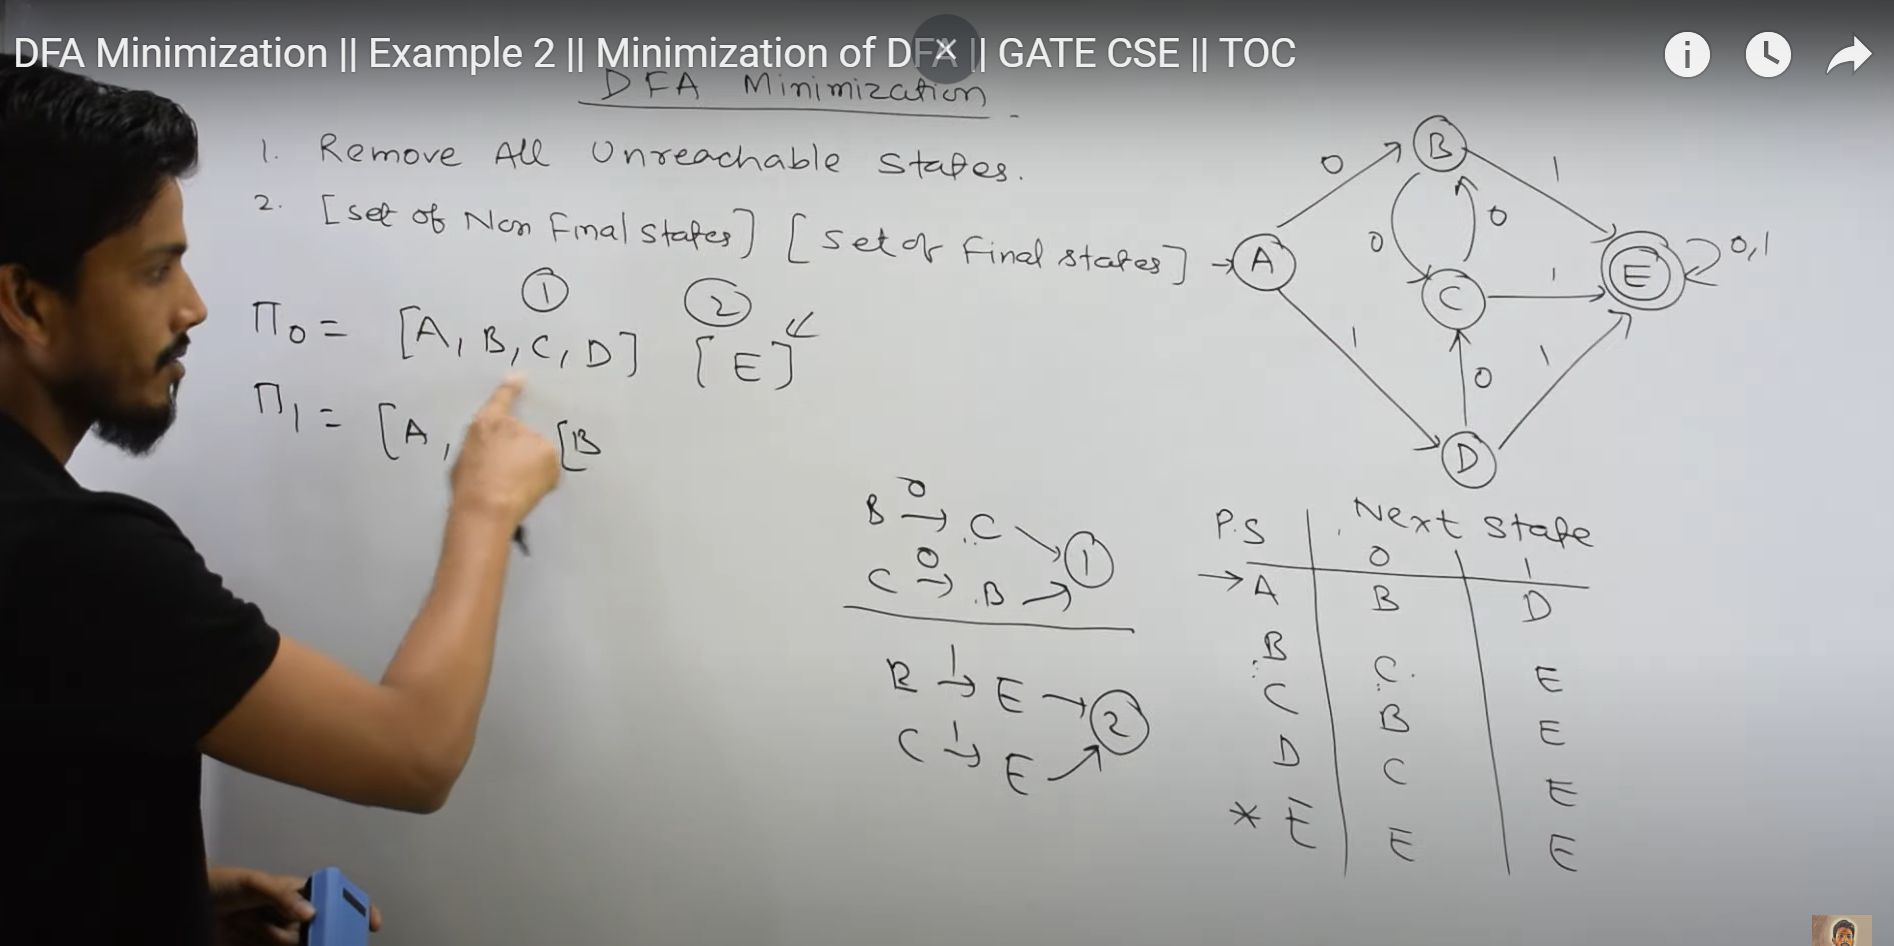 DFA Minimization || Example 2 || Minimization of DFA || GATE CSE || TOC
DFA Minimization
1. Remove All Unreachable States.
2. [set of Non Final states] [set of final states]
① ②
Π0 = [A, B, C, D] [E]
Π1 = [A, [B
B 0→ C → ①
C 0→ B → ①
B 1→ E → ②
C 1→ E → ②
A B C D E
0 1 0 0 1 1 0 1 0,1
P.S Next State
0 1
→ A B D
B C E
C B E
D C E
* E E E